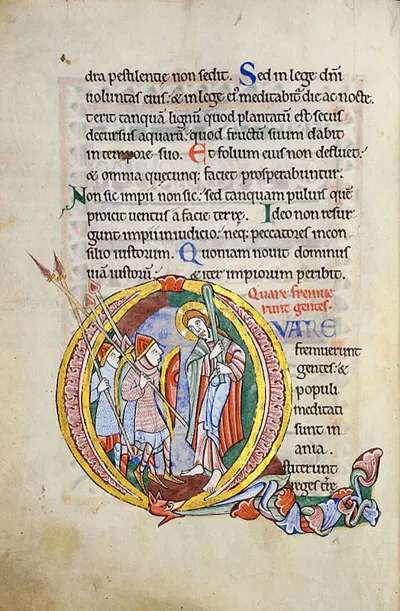 dra pestilentie non sedit. Sed in lege dñi
uoluntas eius: & in lege ei᾿ meditabit᷑ die ac nocte.
terit tanquā lignū quod plantatū est secus
decursus aquarū: quod fructū suum dabit
in tempore suo. Et folium eius non defluet:
& omnia quecunq; faciet prosperabuntur:
Non sic impii non sic: sed tanquam puluis quē
proicit uentus a facie terrę. Ideo non resur
gunt impii in iudicio: neq; peccatores in con
silio iustorum. Quoniam nouit dominus
uiā iustorū: & iter impiorum peribit.
Quare fremue
runt gentes.
VARE
fremuerunt
gentes: &
populi
meditati
sunt in
ania.
stiterunt
reges tr̄e